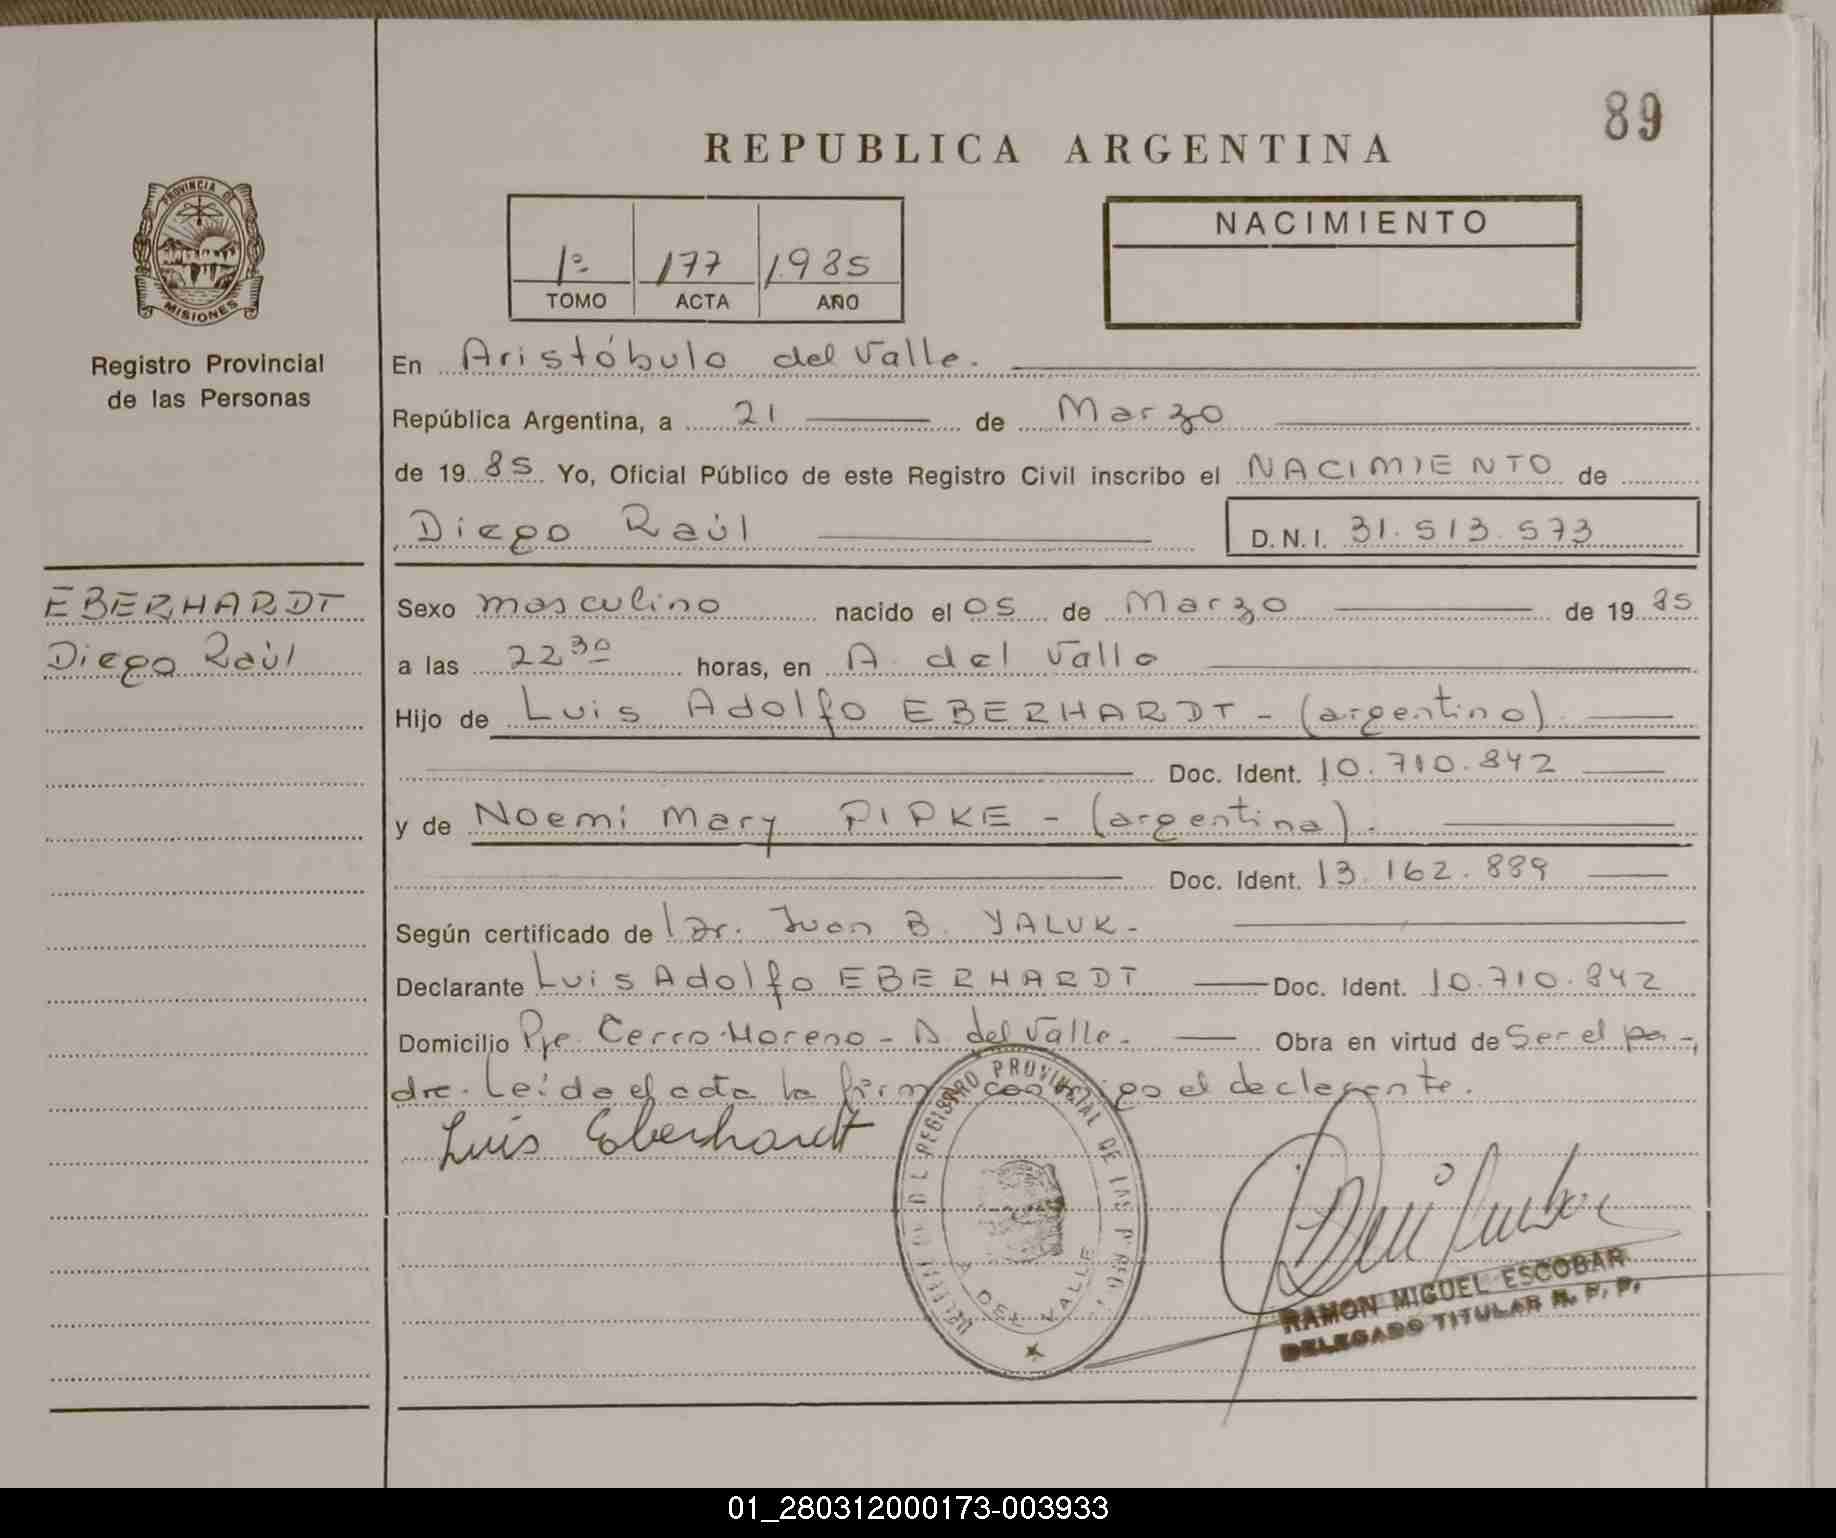 89
REPUBLICA ARGENTINA
PROVINCIA DE
MISIONES
Registro Provincial
de las Personas
1º 177 1985
TOMO ACTA AÑO
NACIMIENTO
En Aristóbulo del Valle.
República Argentina, a 21 de Marzo
de 1985 Yo, Oficial Público de este Registro Civil inscribo el NACIMIENTO de
Diego Raúl D.N.I. 31.513.573
EBERHARDT
Diego Raúl
Sexo masculino nacido el 05 de Marzo de 1985
a las 22 30 horas, en A. del Valle
Hijo de Luis Adolfo EBERHARDT - (argentino)
Doc. Ident. 10.710.842
y de Noemi Mary PIPKE - (argentina).
Doc. Ident. 13.162.889
Según certificado de Dr. Juan B. YALUK.-
Declarante Luis Adolfo EBERHARDT Doc. Ident. 10.710.842
Domicilio Pje. Cerro Moreno - A. del Valle.- Obra en virtud de Ser el pa-
dre. Leída el acta la firma conmigo el declarante.
Luis Eberhardt
DEL REGISTRO PROVINCIAL DE LAS
A. DEL VALLE
RAMON MIGUEL ESCOBAR
DELEGADO TITULAR R. P. P.
01_280312000173-003933